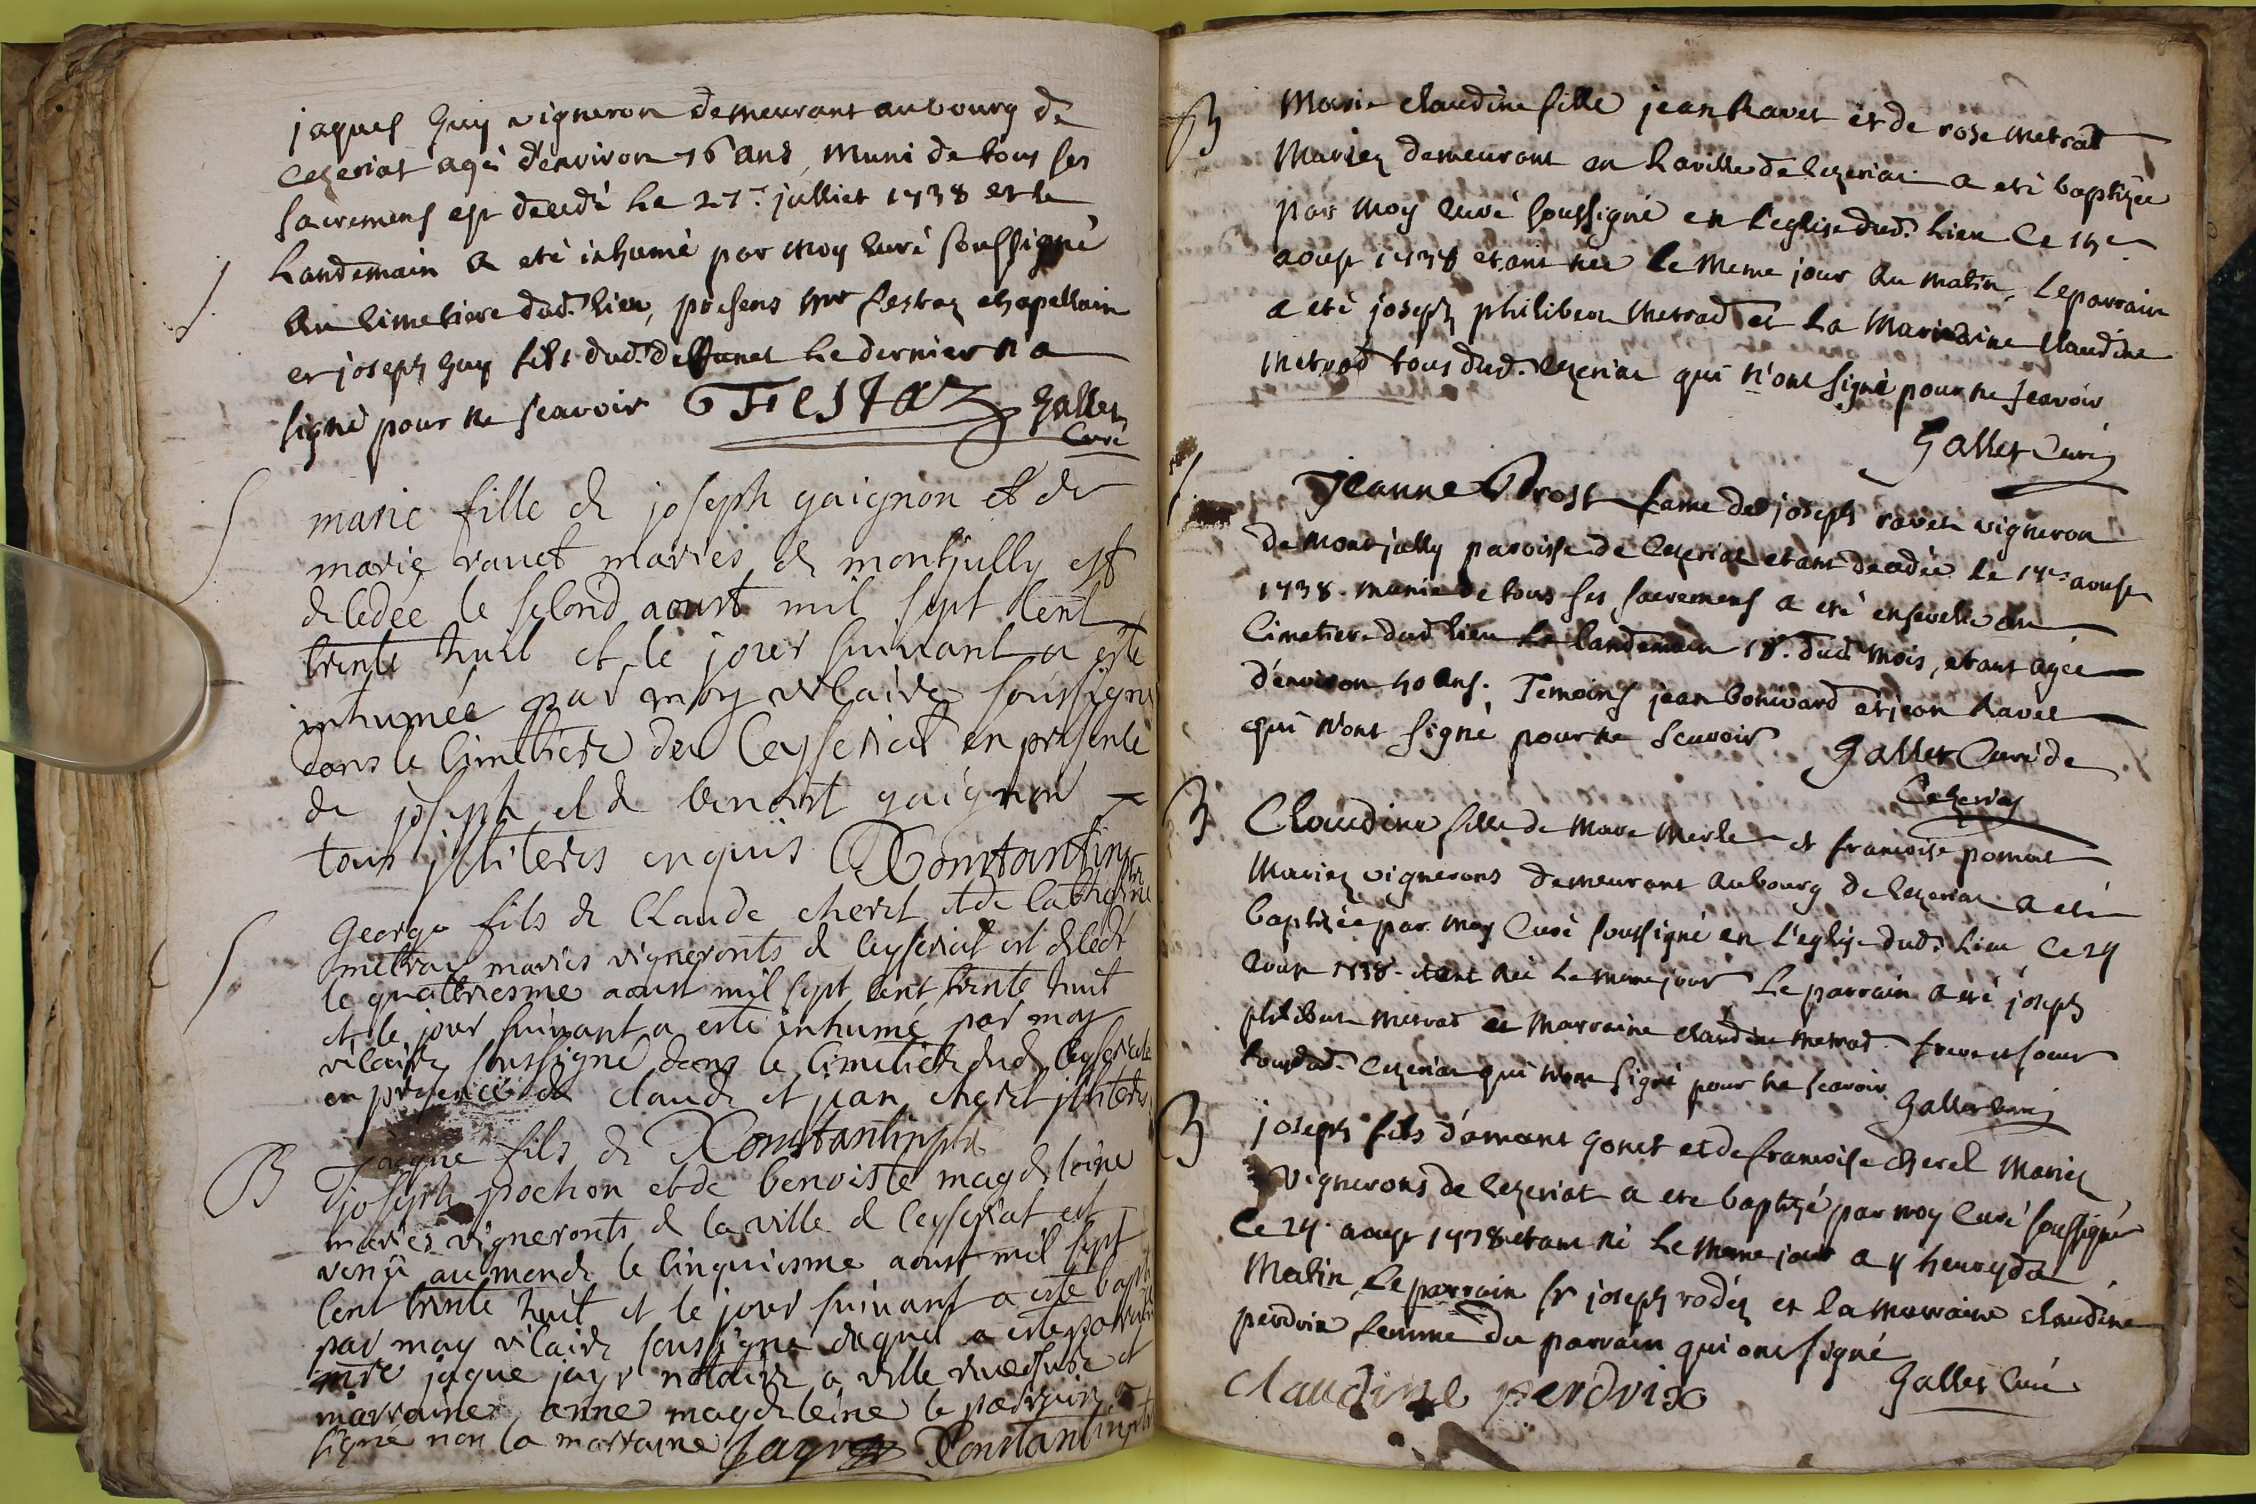 jaques Guy vigneron demeurant au bourg de
Cezeriat agé d'environ 76 ans muni de tous ses
sacremens est decedé le 27e julliet 1738 et le
landemain a eté inhumé par moy curé soussigné
S
au cimetiere dud. lieu, présens mre festaz chapellain
et joseph guy fils dud. deffunct le dernier n'a
signé pour ne scavoir Festaz Gallet
Curé
S
marie fille de joseph gaignon et de
marie rauet maries de montjully est
decedée le second aoust mil sept cent
trente huit et le jour suivant a esté
inhumée par moy vicaire soussigne
dans le cimetiere de Ceyseriat en presence
de joseph et de benoist gaignon
tous illiteres enquis Constantin ptre
S
George fils de Claude cheret et de catherine
metray maries vigneronts de ceyseriat est decedé
le quatriesme aoust mil sept cent trente huit
et le jour suivant a esté inhumé par moy
vicaire soussigné dans le cimetiere dud ceyseriat
en presence de claude et jean cheret illiteres
Constantin ptre
B
jaque fils de
joseph pochon et de benoiste magdeleine
maries vigneronts de la ville de Ceyseriat est
venu au monde le cinquiesme aoust mil sept
cent trente huit et le jour suivant a esté bapt
par moy vicaire soussigne duquel a esté parrain
mre jaque jayr notaire a ville reversure et
marraine anne magdeleine le parrain a
signé non la marraine Jayr Constantin ptre
B
Marie claudine fille jean Ravet et de rose metrad
Mariez demeurant en la ville de Cezeriat a eté baptizée
par moy curé soussigné en l'eglise dud. lieu Ce 15e
aoust 1738 etant née le meme jour au matin, le parrain
a eté joseph philibert Metrad et la Marraine claudine
Metrad tous dud. Cezeriat qui n'ont signé pour ne scavoir
Gallet Curé
S
Jeanne Prost fame de joseph ravet vigneron
de montjully paroisse de Cezeriat etant decedée le 17e aoust
1738. munie de tous ses sacremens a eté ensevelie au
Cimetiere dud lieu le landemain 18. dud mois, etant agée
d'environ 40 ans. Temoins jean bonivard et jean Ravet
qui n'ont signé pour ne scavoir Gallet Curé de
Cezeriat
B
Claudine fille de Marc Merle et francoise pomat
Mariez vignerons demeurant au bourg de Cezeriat a eté
baptizée par moy Curé soussigné en l'eglise dud. lieu Ce 24
aoust 1738. etant née le meme jour le parrain a eté joseph
philibert metrad et marraine claudine metrad frere et soeur
tous dud. Cezeriat qui n'ont signé pour ne scavoir Gallet Curé
B
joseph fils d'amant gonet et de francoise cheret Mariez
vignerons de Cezeriat a eté baptizé par moy Curé soussigné
Ce 24. aoust 1738 etant né le meme jour a 4 heures du
Matin, le parrain sr joseph rodéz et la marraine claudine
perdrix femme du parrain qui ont signé
Gallet Curé
claudine perdrix